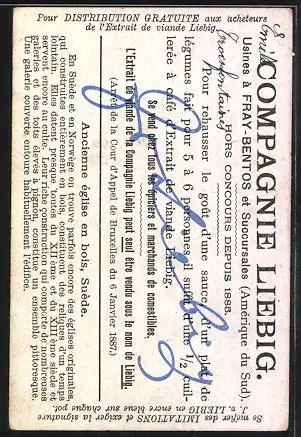 Pour DISTRIBUTION GRATUITE aux acheteurs
de l'Extrait de viande Liebig.
COMPAGNIE LIEBIG.
Usines à FRAY-BENTOS et Succursales (Amérique du Sud).
HORS CONCOURS DEPUIS 1885.
Pour rehausser le goût d'une sauce, d'un plat de
légumes fait pour 5 à 6 personnes il suffit d'une 1/2 cuil-
lerée à café d'Extrait de viande Liebig.
Se vend chez tous les épiciers et marchands de comestibles.
L'Extrait de viande de la Compagnie Liebig peut seul être vendu sous le nom de Liebig.
(Arrêt de la Cour d'Appel de Bruxelles du 6 Janvier 1887.)
Ancienne église en bois, Suède.
En Suède et en Norvège on trouve parfois encore des églises originales,
qui construites entièrement en bois, constituent des reliques d'un temps
lointain. Elles datent presque toutes du XIIème et du XIIIème siècle et
servent encore au culte. Leur riche construction, qui comporte de nombreuses
galeries et des toits élevés à pignon, constitue un ensemble pittoresque.
Une galerie couverte entoure habituellement l'édifice.
Se méfier des IMITATIONS et exiger la signature
J. v. LIEBIG en encre bleue sur chaque pot.